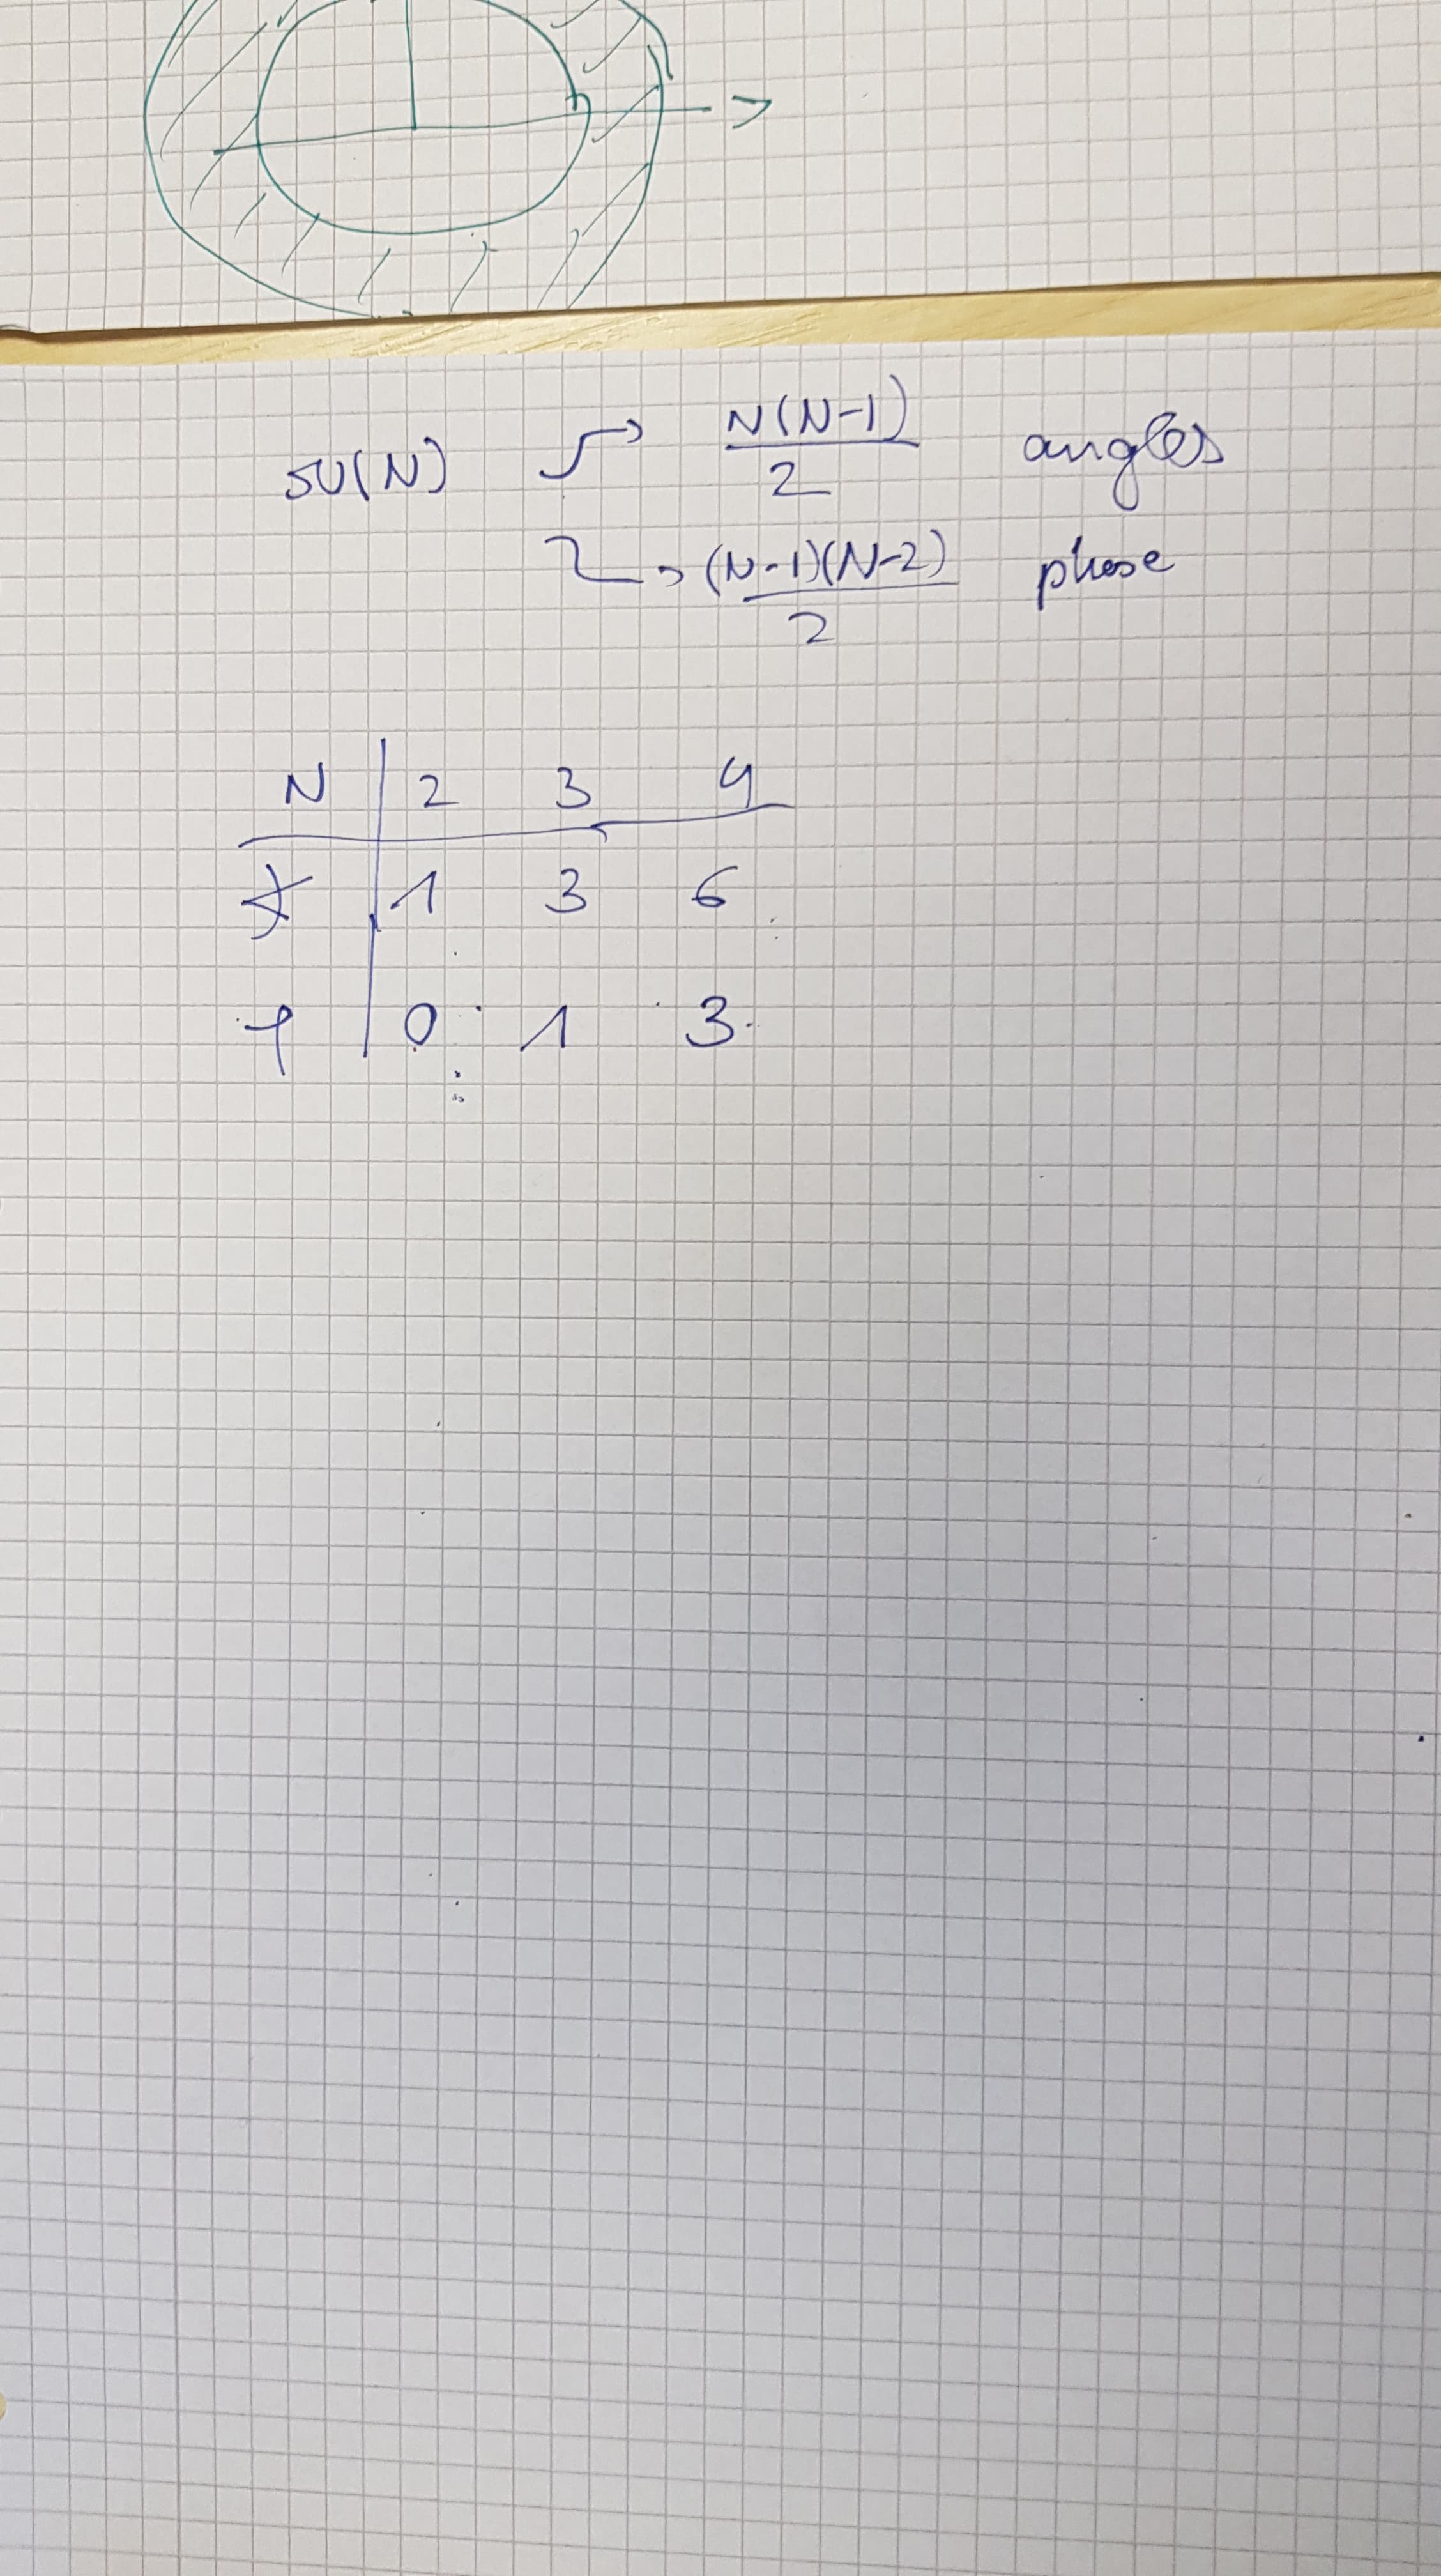 SU(N) → N(N-1)/2 angles
→ (N-1)(N-2)/2 phase
N | 2 3 4
∢ | 1 3 6
φ | 0 1 3